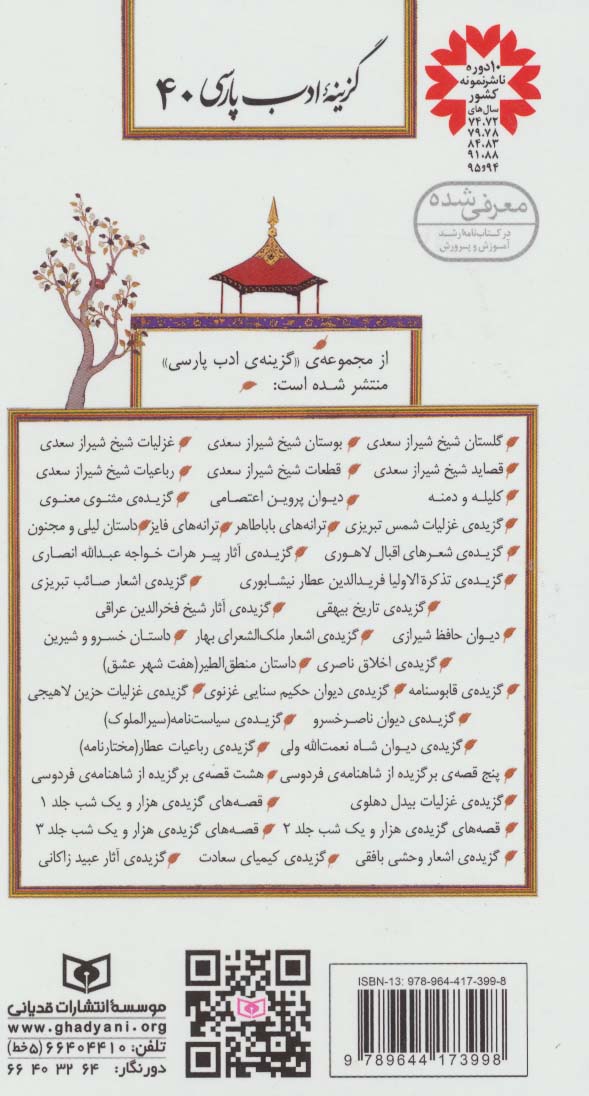 گزینهٔ ادب پارسی ۴۰
۱۰ دوره
ناشر نمونه
کشور
سال‌های
۷۴،۷۲
۷۹،۷۸
۸۴،۸۳
۹۱،۸۸
۹۴و۹۵
معرفی شده
در کتاب‌نامه رشد
آموزش و پرورش
از مجموعه‌ی «گزینه‌ی ادب پارسی»
منتشر شده است:
گلستان شیخ شیراز سعدی بوستان شیخ شیراز سعدی غزلیات شیخ شیراز سعدی
قصاید شیخ شیراز سعدی قطعات شیخ شیراز سعدی رباعیات شیخ شیراز سعدی
کلیله و دمنه دیوان پروین اعتصامی گزیده‌ی مثنوی معنوی
گزیده‌ی غزلیات شمس تبریزی ترانه‌های باباطاهر ترانه‌های فایز داستان لیلی و مجنون
گزیده‌ی شعرهای اقبال لاهوری گزیده‌ی آثار پیر هرات خواجه عبدالله انصاری
گزیده‌ی تذکرة الاولیا فریدالدین عطار نیشابوری گزیده‌ی اشعار صائب تبریزی
گزیده‌ی تاریخ بیهقی گزیده‌ی آثار شیخ فخرالدین عراقی
دیوان حافظ شیرازی گزیده‌ی اشعار ملک‌الشعرای بهار داستان خسرو و شیرین
گزیده‌ی اخلاق ناصری داستان منطق‌الطیر(هفت شهر عشق)
گزیده‌ی قابوسنامه گزیده‌ی دیوان حکیم سنایی غزنوی گزیده‌ی غزلیات حزین لاهیجی
گزیده‌ی دیوان ناصرخسرو گزیده‌ی سیاست‌نامه(سیرالملوک)
گزیده‌ی دیوان شاه نعمت‌الله ولی گزیده‌ی رباعیات عطار(مختارنامه)
پنج قصه‌ی برگزیده از شاهنامه‌ی فردوسی هشت قصه‌ی برگزیده از شاهنامه‌ی فردوسی
گزیده‌ی غزلیات بیدل دهلوی قصه‌های گزیده‌ی هزار و یک شب جلد ۱
قصه‌های گزیده‌ی هزار و یک شب جلد ۲ قصه‌های گزیده‌ی هزار و یک شب جلد ۳
گزیده‌ی اشعار وحشی بافقی گزیده‌ی کیمیای سعادت گزیده‌ی آثار عبید زاکانی
موسسهٔ انتشارات قدیانی
www.ghadyani.org
تلفن: ۶۶۴۰۴۴۱۰ (۵خط)
دورنگار: ۶۶۴۰۳۲۶۴
ISBN-13: 978-964-417-399-8
9 789644 173998